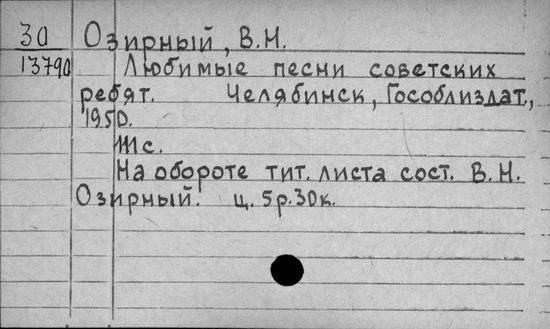 30 Озирный, В.Н.
13790 Любимые песни советских
ребят. Челябинск, Гособлиздат.,
1950.
111с.
На обороте тит. листа сост. В.Н.
Озирный. ц. 5р.30к.